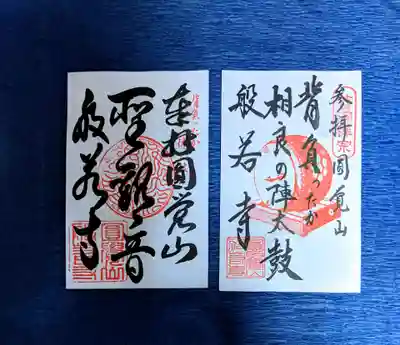 奉拝圓覚山
聖観音
般若寺
参拝圓覚山
背負ったか
相良の陣太鼓
般若寺